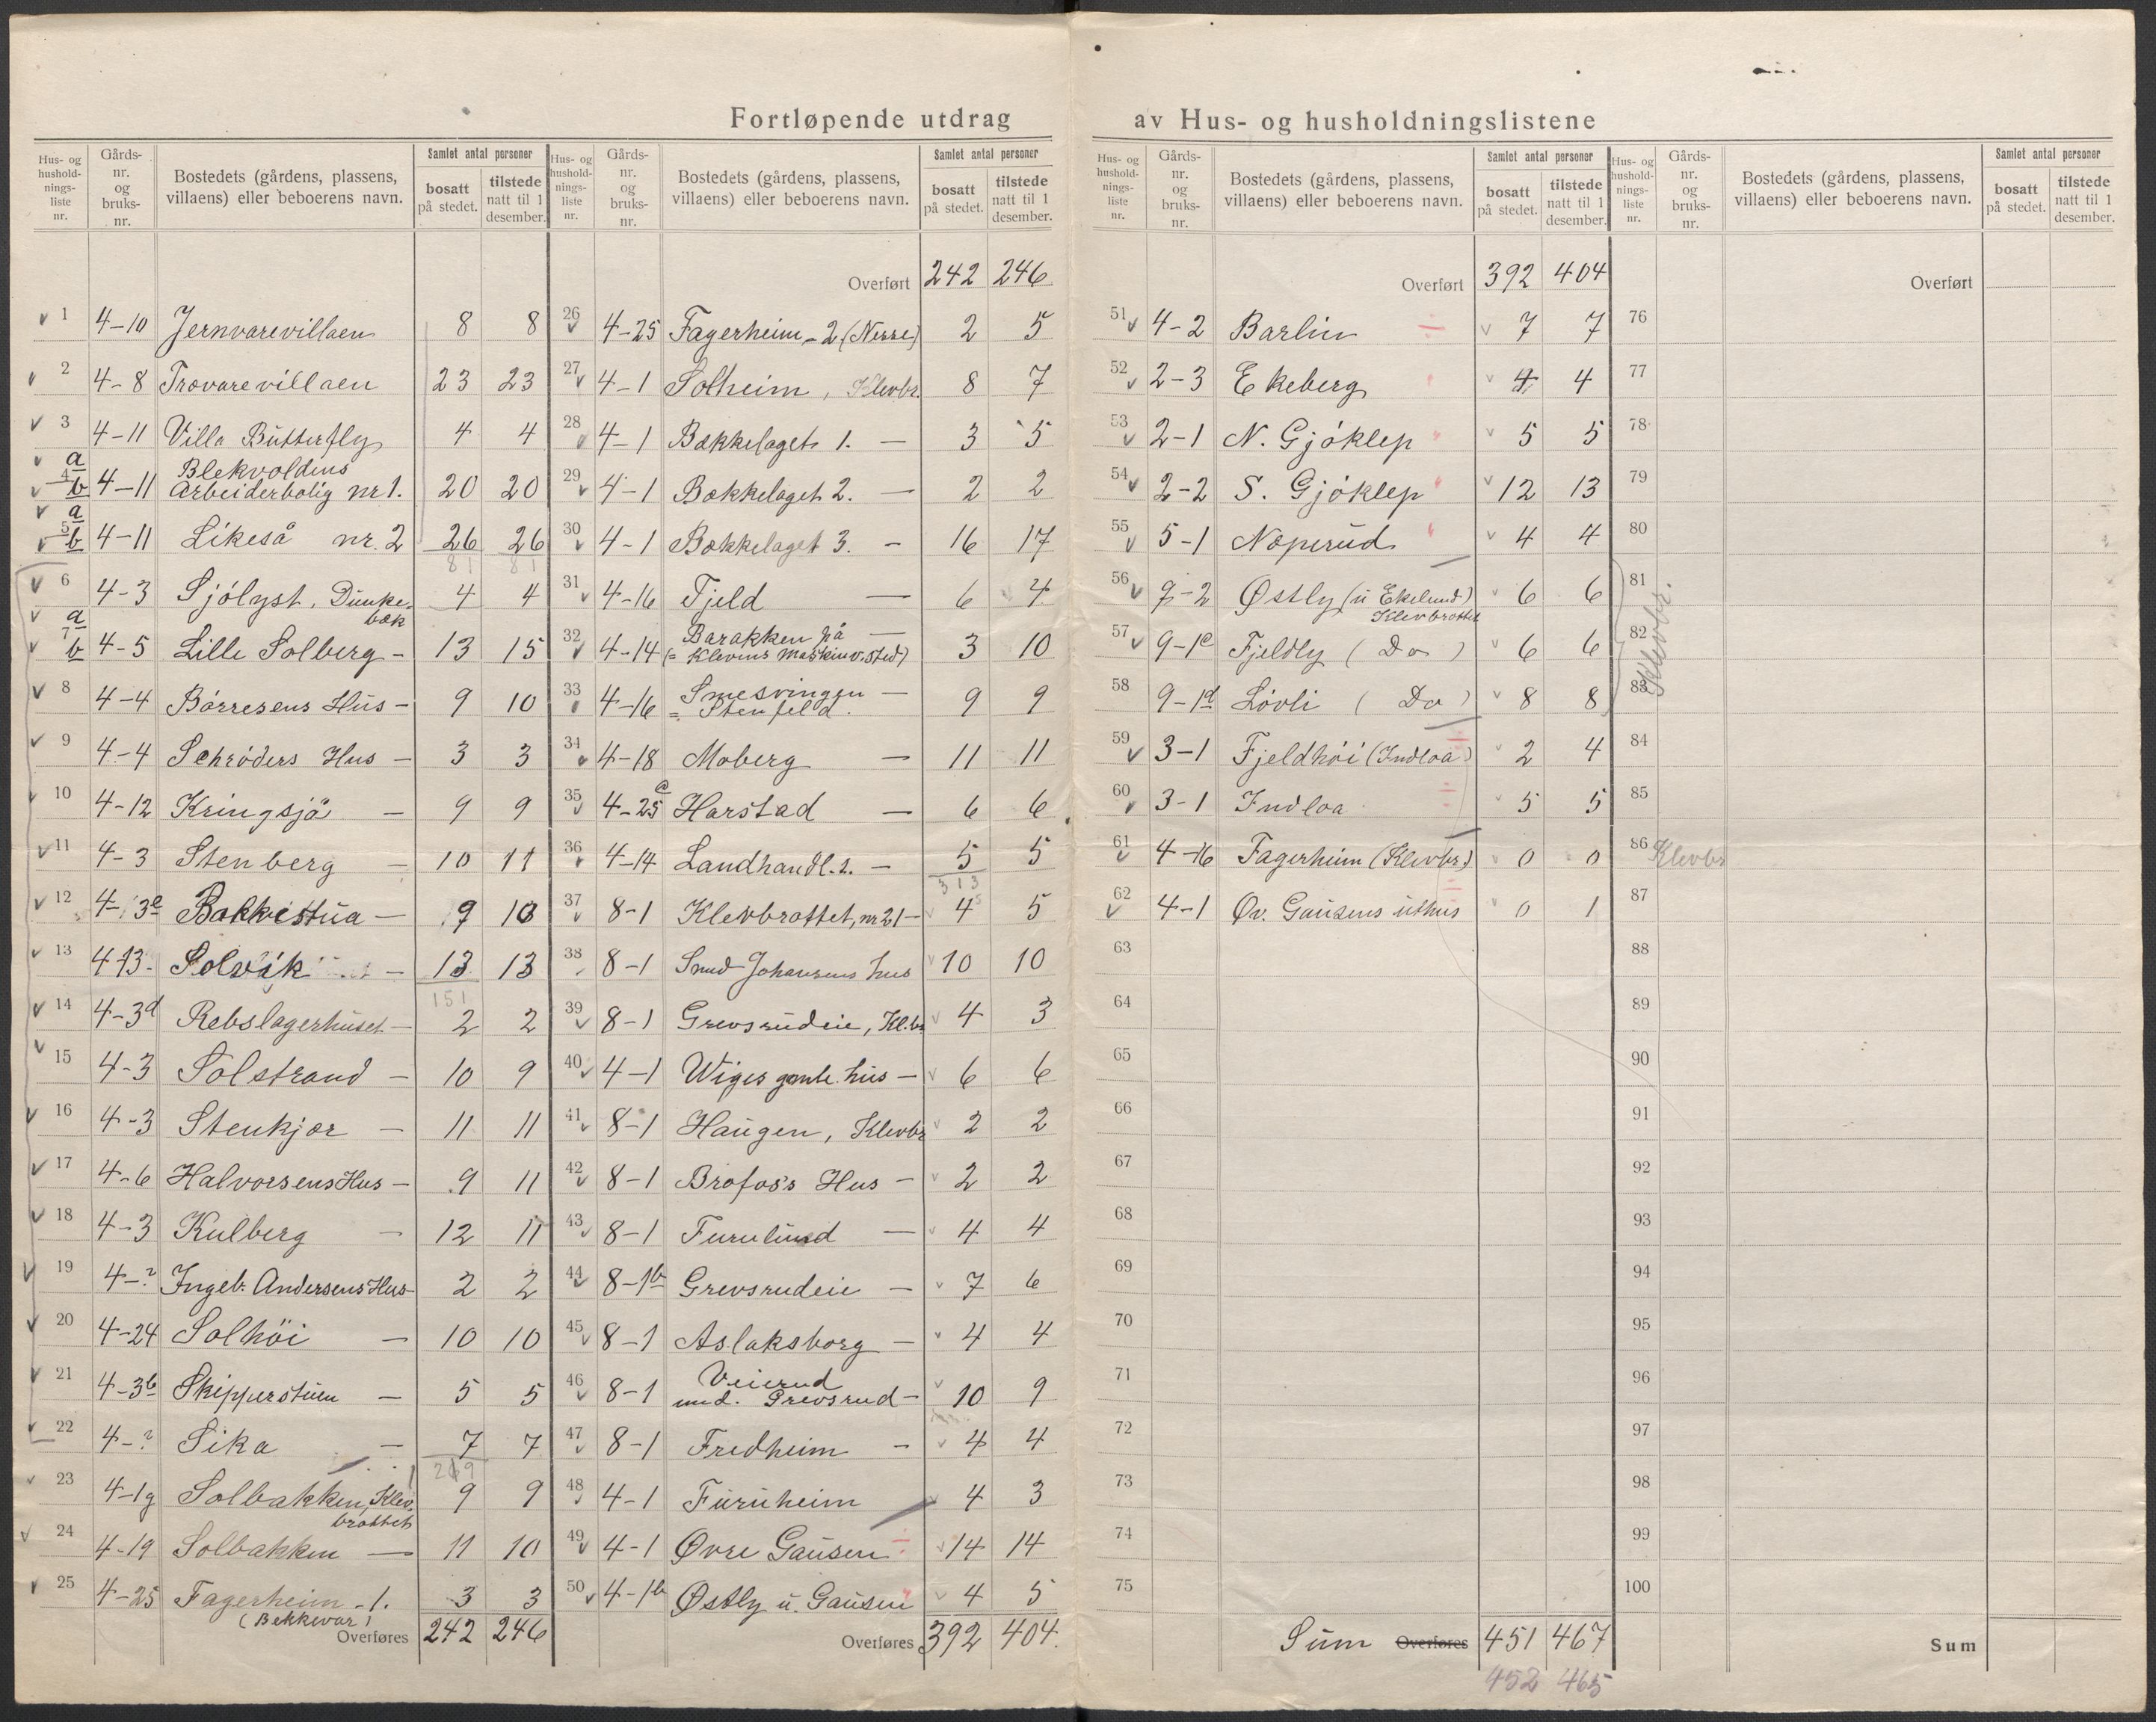 Fortløpende utdrag av Hus- og husholdningslistene
Hus- og hushold-nings-liste nr. | Gårds-nr. og bruks-nr. | Bostedets (gårdens, plassens, villaens) eller beboerens navn. | Samlet antal personer: bosatt på stedet. | tilstede natt til 1 desember.
1 4-10 Jernvarevillaen 8 8
2 4-8 Trævarevillaen 23 23
3 4-11 Villa Butterfly 4 4
4 a b 4-11 Blekvoldens Arbeiderbolig nr 1. 20 20
5 a b 4-11 Likeså nr. 2 26 26
81 81
6 4-3 Sjölyst, Dunkebæk 4 4
7 a b 4-5 Lille Solberg - 13 15
8 4-4 Börresens Hus - 9 10
9 4-4 Schröders Hus - 3 3
10 4-12 Kringsjå - 9 9
11 4-3 Stenberg - 10 11
12 4-3e Bakkestua - 9 10
13 4-13 Solvik - 13 13
151
14 4-3d Rebslagerhuset - 2 2
15 4-3 Solstrand - 10 9
16 4-3 Stenkjær - 11 11
17 4-6 Halvorsens Hus - 9 11
18 4-3 Kulberg - 12 11
19 4-? Ingeb. Andersens Hus - 2 2
20 4-24 Solhöi - 10 10
21 4-3b Skipperstuen - 5 5
22 4-? Sika - 7 7
219
23 4-1g Solbakken, Klevbrottet 9 9
24 4-19 Solbakken - 11 10
25 4-25 Fagerheim - 1. (Bekkevar) 3 3
Overføres 242 246
Hus- og hushold-nings-liste nr. | Gårds-nr. og bruks-nr. | Bostedets (gårdens, plassens, villaens) eller beboerens navn. | Samlet antal personer: bosatt på stedet. | tilstede natt til 1 desember.
Overført 242 246
26 4-25 Fagerheim - 2 2 5
27 4-1 Solheim, Klevbr. 8 7
28 4-1 Bækkelaget 1. - 3 5
29 4-1 Bækkelaget 2. - 2 2
30 4-1 Bækkelaget 3. - 16 17
31 4-16 Fjeld - 6 4
32 4-14 Barakken på - (= Klevens maskinv. sted) 3 10
33 4-16 Smesvingen - = Stenfeld. 9 9
34 4-18 Moberg - 11 11
35 4-25a Harstad - 6 6
36 4-14 Landhandl. 2. - 5 5
313
37 8-1 Klevbrottet, nr 21 - 4 5
38 8-1 Smed Johansens hus 10 10
39 8-1 Grevsrudeie, Kl.br 4 3
40 4-1 Wiges gamle hus - 6 6
41 8-1 Haugen, Klevbr 2 2
42 8-1 Brofoss Hus - 2 2
43 8-1 Furulund - 4 4
44 8-1b Grevsrudeie - 7 6
45 8-1 Aslaksborg - 4 4
46 8-1 Veierud und. Grevsrud - 10 9
47 8-1 Fredheim - 4 4
48 4-1 Furuheim 4 3
49 4-1 Øvre Gausen 14 14
50 4-1b Østly u. Gausen 4 5
Overføres 392 404.
Hus- og hushold-nings-liste nr. | Gårds-nr. og bruks-nr. | Bostedets (gårdens, plassens, villaens) eller beboerens navn. | Samlet antal personer: bosatt på stedet. | tilstede natt til 1 desember.
Overført 392 404
51 4-2 Barlin 7 7
52 2-3 Ekeberg 4 4
53 2-1 N. Gjöklep 5 5
54 2-2 S. Gjöklep 12 13
55 5-1 Noperud 4 4
56 9-2 Østly (u Ekelund) Klevbrottet 6 6
57 9-1c Fjeldly (Do) 6 6
58 9-1d Lövli (Do) 8 8
59 3-1 Fjeldhöi (Indloa) 2 4
60 3-1 Indloa 5 5
61 4-16 Fagerheim (Klevbr.) 0 0
62 4-1 Øv. Gausens uthus 0 1
63
64
65
66
67
68
69
70
71
72
73
74
75
Sum Overføres 451 467
452 465
Hus- og hushold-nings-liste nr. | Gårds-nr. og bruks-nr. | Bostedets (gårdens, plassens, villaens) eller beboerens navn. | Samlet antal personer: bosatt på stedet. | tilstede natt til 1 desember.
Overført
76
77
78
79
80
81
82 Klevbr.
83
84
85
86 Klevbr
87
88
89
90
91
92
93
94
95
96
97
98
99
100
Sum